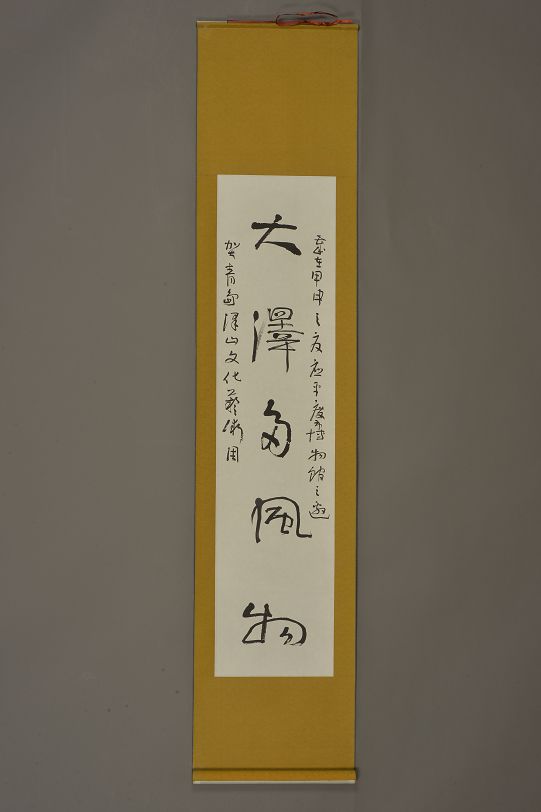 歲在甲申之夏應平度博物館之邀
大澤多風物
賀青島澤山文化藝術周